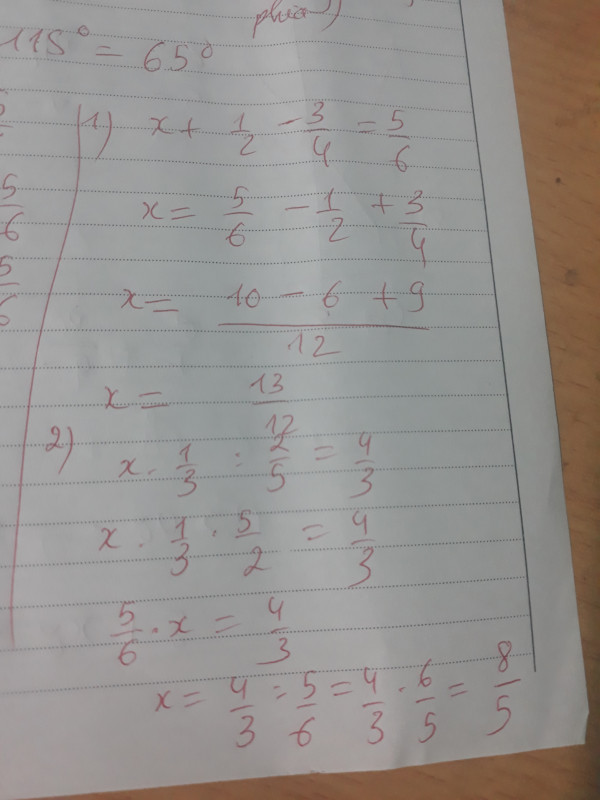 phía)
115° = 65°
5/6
5/6
1) x + 1/2 - 3/4 = 5/6
x = 5/6 - 1/2 + 3/4
x = (10 - 6 + 9)/12
x = 13/12
2) x . 1/3 : 2/5 = 4/3
x . 1/3 . 5/2 = 4/3
5/6 . x = 4/3
x = 4/3 : 5/6 = 4/3 . 6/5 = 8/5